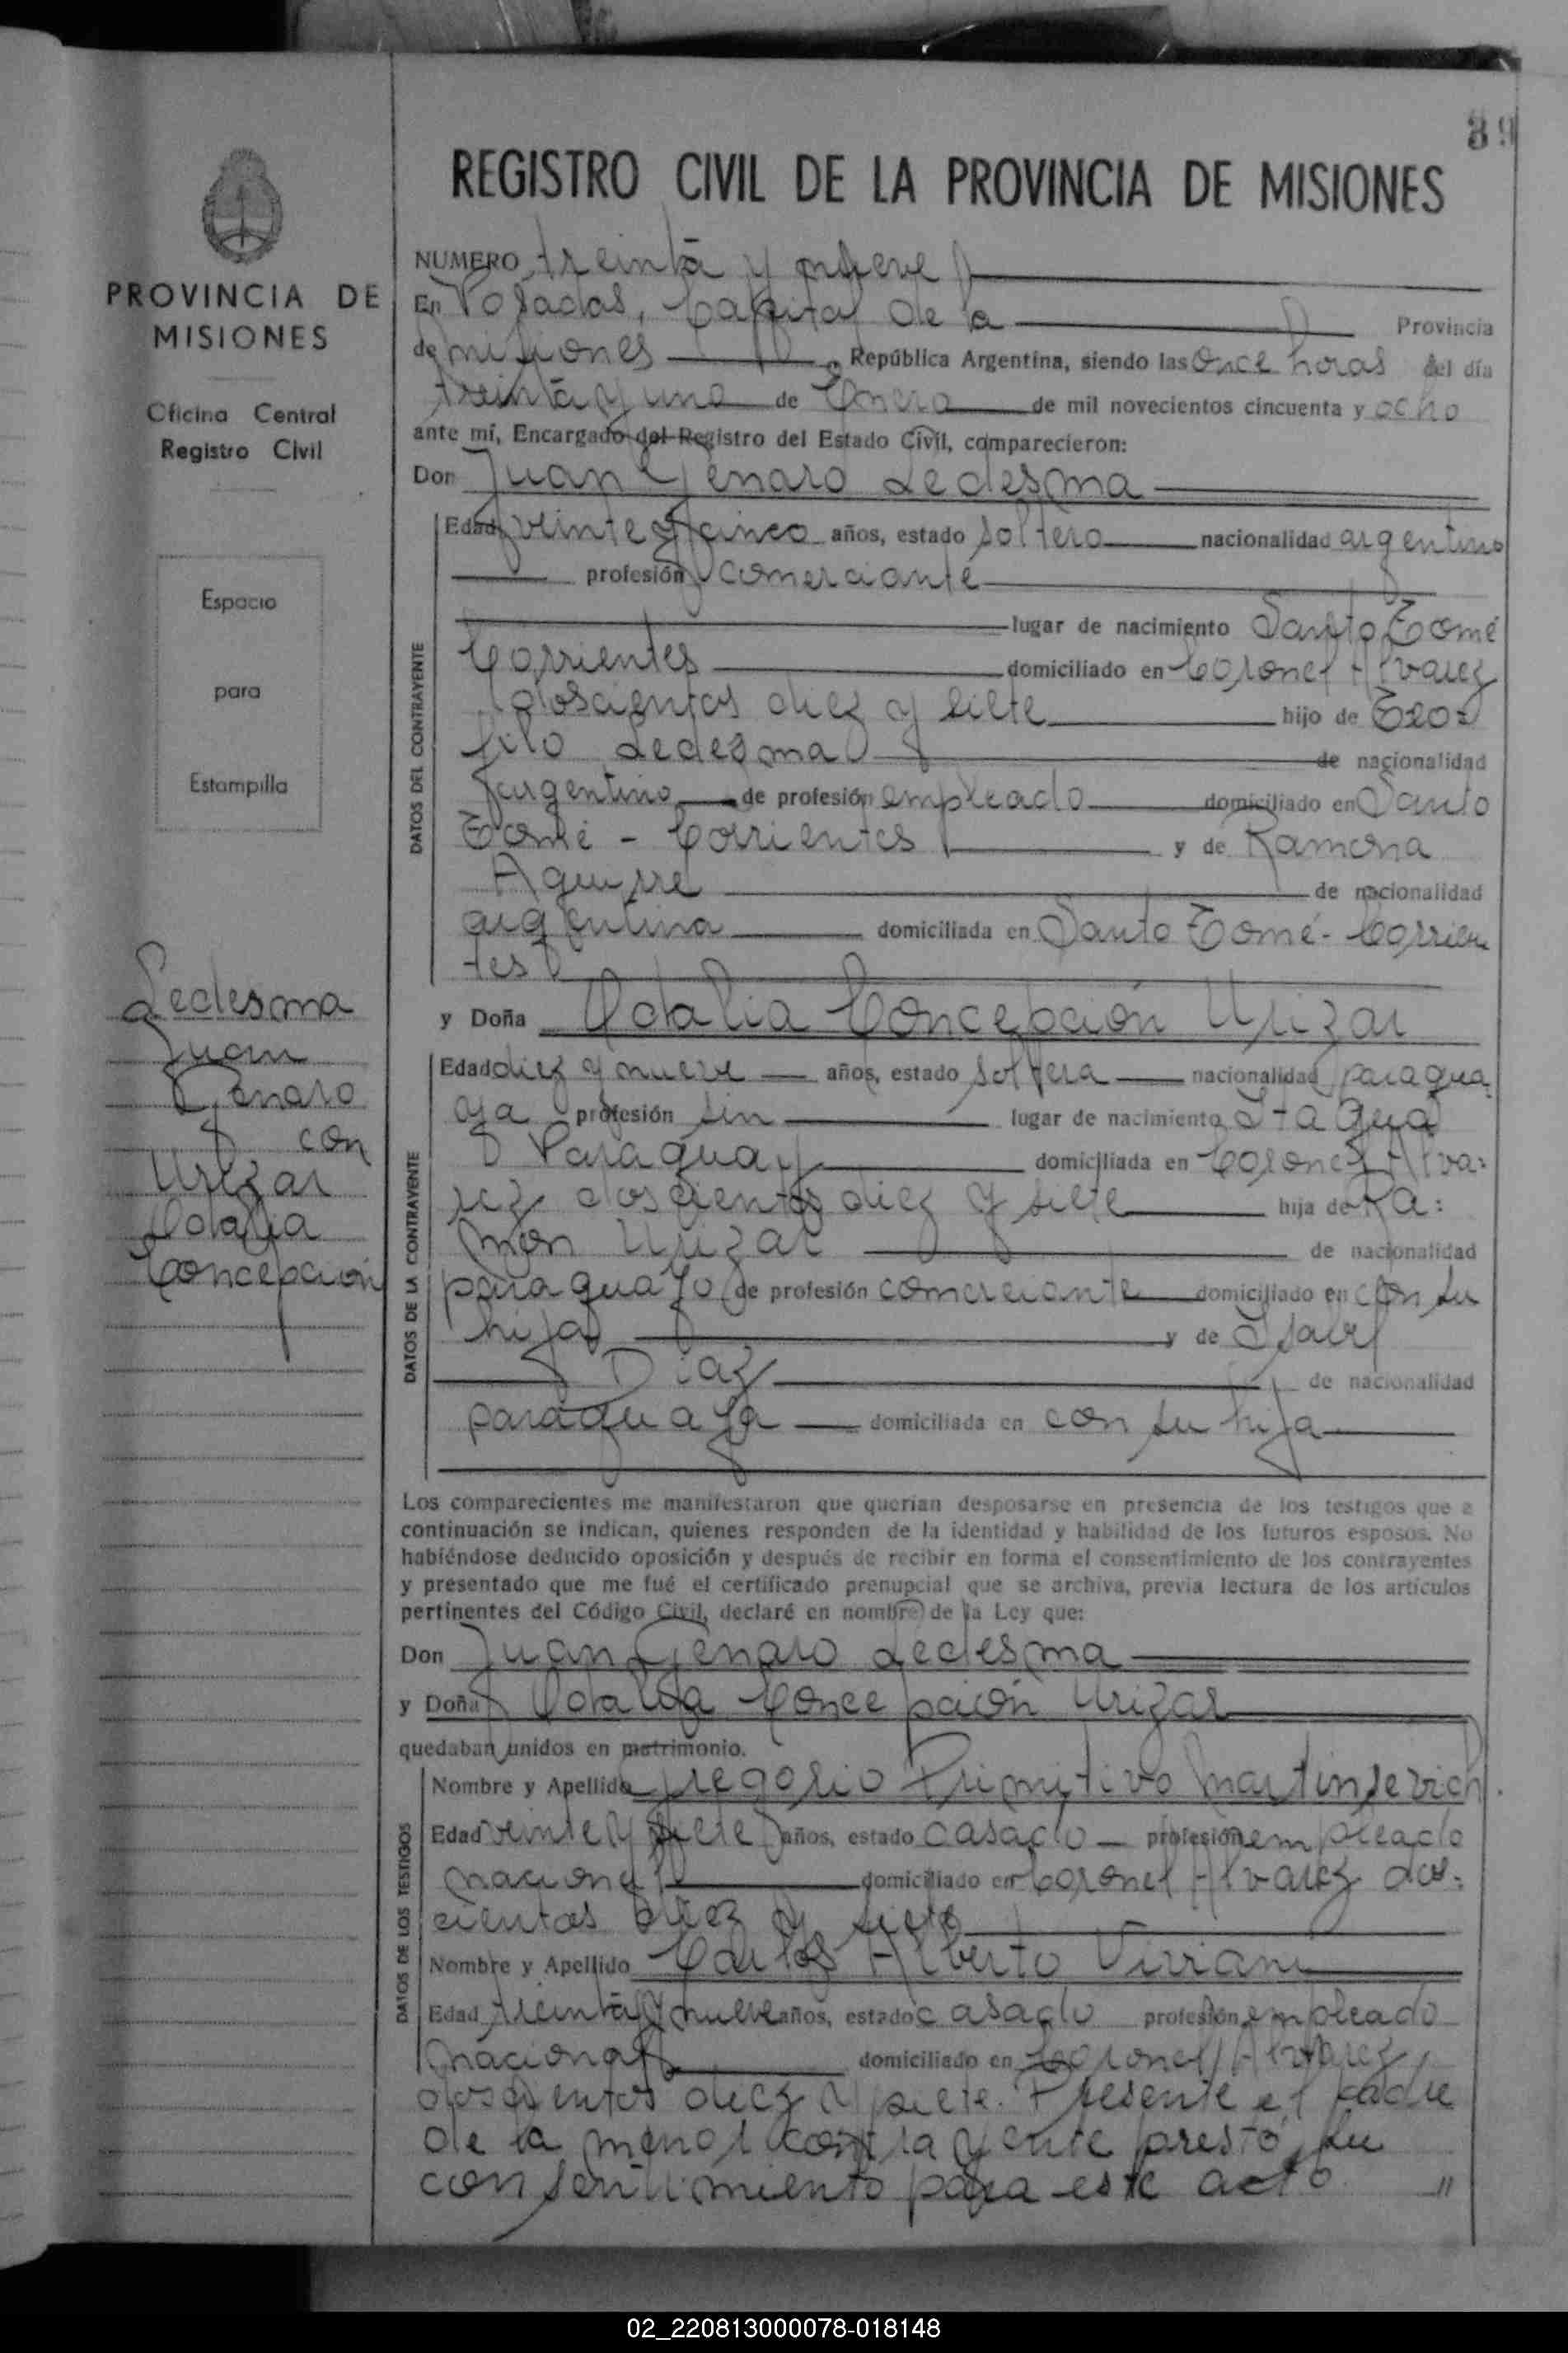 39
REGISTRO CIVIL DE LA PROVINCIA DE MISIONES
PROVINCIA DE
MISIONES
Oficina Central
Registro Civil
Espacio
para
Estampilla
Ledesma
Juan
Genaro
con
Urizar
Odalia
Concepción
NUMERO treinta y nueve
En Posadas, Capital de la Provincia
de Misiones, República Argentina, siendo las once horas del día
treinta y uno de Enero de mil novecientos cincuenta y ocho
ante mí, Encargado del Registro del Estado Civil, comparecieron:
Don Juan Genaro Ledesma
DATOS DEL CONTRAYENTE
Edad veinte y cinco años, estado soltero nacionalidad argentino
profesión comerciante
lugar de nacimiento Santo Tomé
Corrientes domiciliado en Coronel Alvarez
doscientos diez y siete hijo de Teo=
filo Ledesma de nacionalidad
argentino de profesión empleado domiciliado en Santo
Tomé - Corrientes y de Ramona
Aguirre de nacionalidad
argentina domiciliada en Santo Tomé - Corrien
tes
y Doña Odalia Concepción Urizar
DATOS DE LA CONTRAYENTE
Edad diez y nueve años, estado soltera nacionalidad paragua
ya profesión sin lugar de nacimiento Itagua
Paraguay domiciliada en Coronel Alva=
rez doscientos diez y siete hija de Ra=
mon Urizar de nacionalidad
paraguayo de profesión comerciante domiciliado en con su
hija y de
Diaz de nacionalidad
paraguaya domiciliada en con su hija
Los comparecientes me manifestaron que querían desposarse en presencia de los testigos que a
continuación se indican, quienes responden de la identidad y habilidad de los futuros esposos. No
habiéndose deducido oposición y después de recibir en forma el consentimiento de los contrayentes
y presentado que me fué el certificado prenupcial que se archiva, previa lectura de los artículos
pertinentes del Código Civil, declaré en nombre de la Ley que:
Don Juan Genaro Ledesma
y Doña Odalia Concepción Urizar
quedaban unidos en matrimonio.
DATOS DE LOS TESTIGOS
Nombre y Apellido Gregorio Primitivo
Edad veinte y siete años, estado casado profesión empleado
nacional domiciliado en Coronel Alvarez dos=
cientos diez y siete
Nombre y Apellido Carlos Alberto
Edad treinta y nueve años, estado casado profesión empleado
nacional domiciliado en Coronel Alvarez
doscientos diez y siete. Presente el padre
de la menor contrayente prestó su
consentimiento para este acto. "
02_220813000078-018148